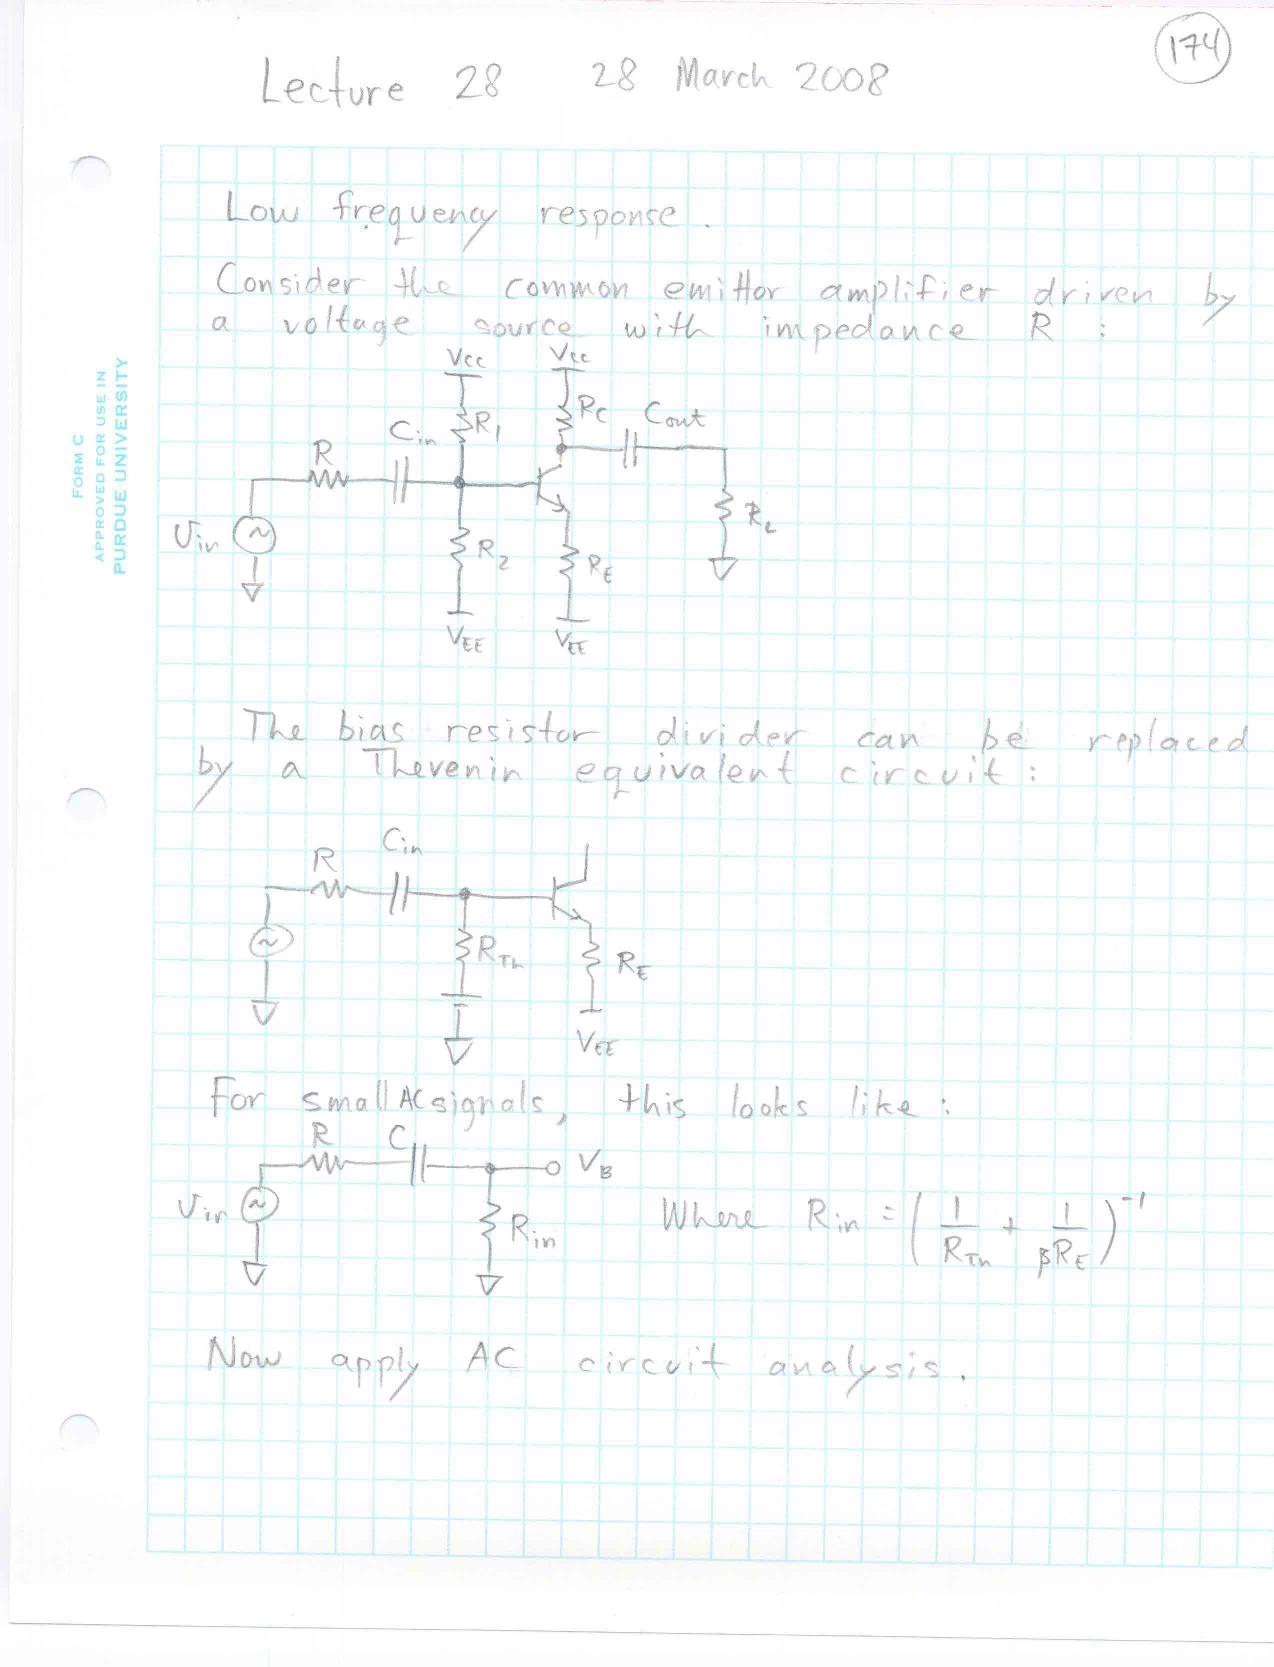 174
Lecture 28 28 March 2008
FORM C
APPROVED FOR USE IN
PURDUE UNIVERSITY
Low frequency response.
Consider the common emittor amplifier driven by
a voltage source with impedance R :
Vcc Vcc
R1 Rc Cout
R Cin
Vin R2 RE RL
VEE VEE
The bias resistor divider can be replaced
by a Thevenin equivalent circuit :
R Cin
RTh RE
VEE
For small AC signals, this looks like :
R C VB
Vin Rin Where Rin = ( 1/RTh + 1/βRE )^-1
Now apply AC circuit analysis.